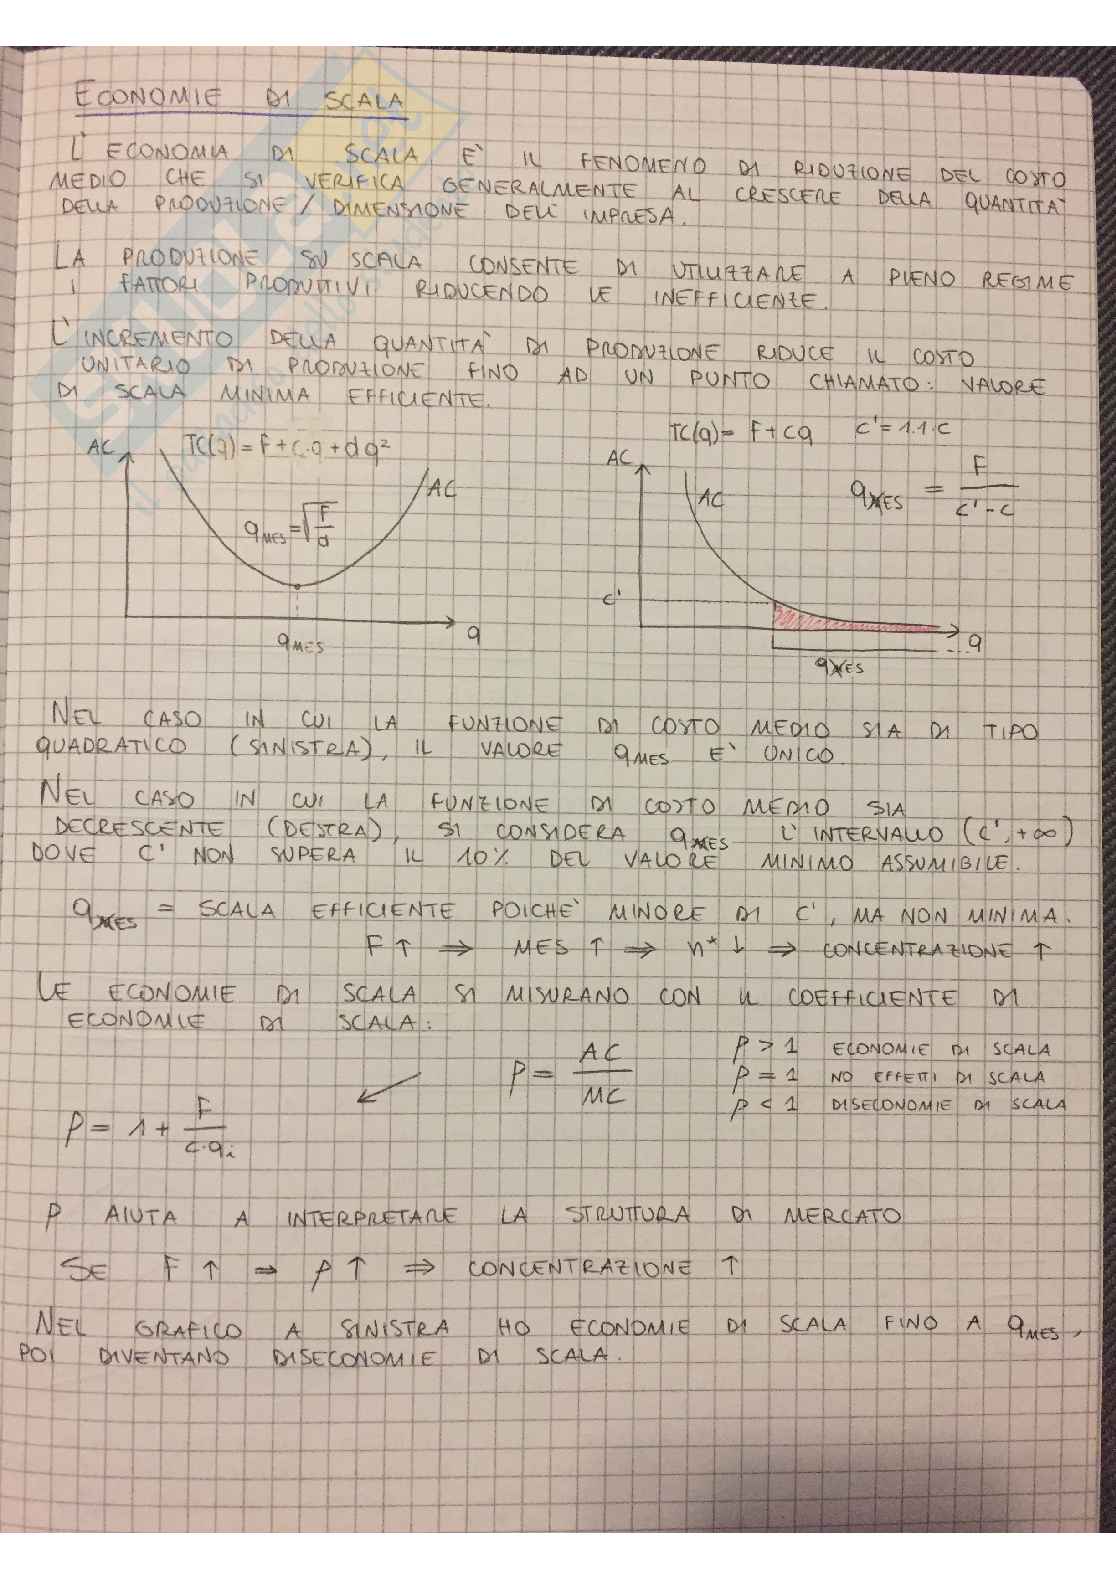 ECONOMIE DI SCALA
L'ECONOMIA DI SCALA E' IL FENOMENO DI RIDUZIONE DEL COSTO
MEDIO CHE SI VERIFICA GENERALMENTE AL CRESCERE DELLA QUANTITA'
DELLA PRODUZIONE / DIMENSIONE DELL'IMPRESA.
LA PRODUZIONE SU SCALA CONSENTE DI UTILIZZARE A PIENO REGIME
I FATTORI PRODUTTIVI RIDUCENDO LE INEFFICIENZE.
L'INCREMENTO DELLA QUANTITA' DI PRODUZIONE RIDUCE IL COSTO
UNITARIO DI PRODUZIONE FINO AD UN PUNTO CHIAMATO: VALORE
DI SCALA MINIMA EFFICIENTE.
AC TC(q) = F + c·q + dq²
AC
qMES = √(F/d)
qMES
q
TC(q) = F + cq c' = 1.1·c
AC
AC
qMES = F / (c' - c)
c'
q
qMES
NEL CASO IN CUI LA FUNZIONE DI COSTO MEDIO SIA DI TIPO
QUADRATICO (SINISTRA), IL VALORE qMES E' UNICO.
NEL CASO IN CUI LA FUNZIONE DI COSTO MEDIO SIA
DECRESCENTE (DESTRA), SI CONSIDERA qMES L'INTERVALLO (c', +∞)
DOVE C' NON SUPERA IL 10% DEL VALORE MINIMO ASSUMIBILE.
qMES = SCALA EFFICIENTE POICHE' MINORE DI C', MA NON MINIMA.
F ↑ ⇒ MES ↑ ⇒ n* ↓ ⇒ CONCENTRAZIONE ↑
LE ECONOMIE DI SCALA SI MISURANO CON IL COEFFICIENTE DI
ECONOMIE DI SCALA:
ρ = AC / MC
ρ > 1 ECONOMIE DI SCALA
ρ = 1 NO EFFETTI DI SCALA
ρ < 1 DISECONOMIE DI SCALA
ρ = 1 + F / (c·qi)
ρ AIUTA A INTERPRETARE LA STRUTTURA DI MERCATO
SE F ↑ ⇒ ρ ↑ ⇒ CONCENTRAZIONE ↑
NEL GRAFICO A SINISTRA HO ECONOMIE DI SCALA FINO A qMES,
POI DIVENTANO DISECONOMIE DI SCALA.